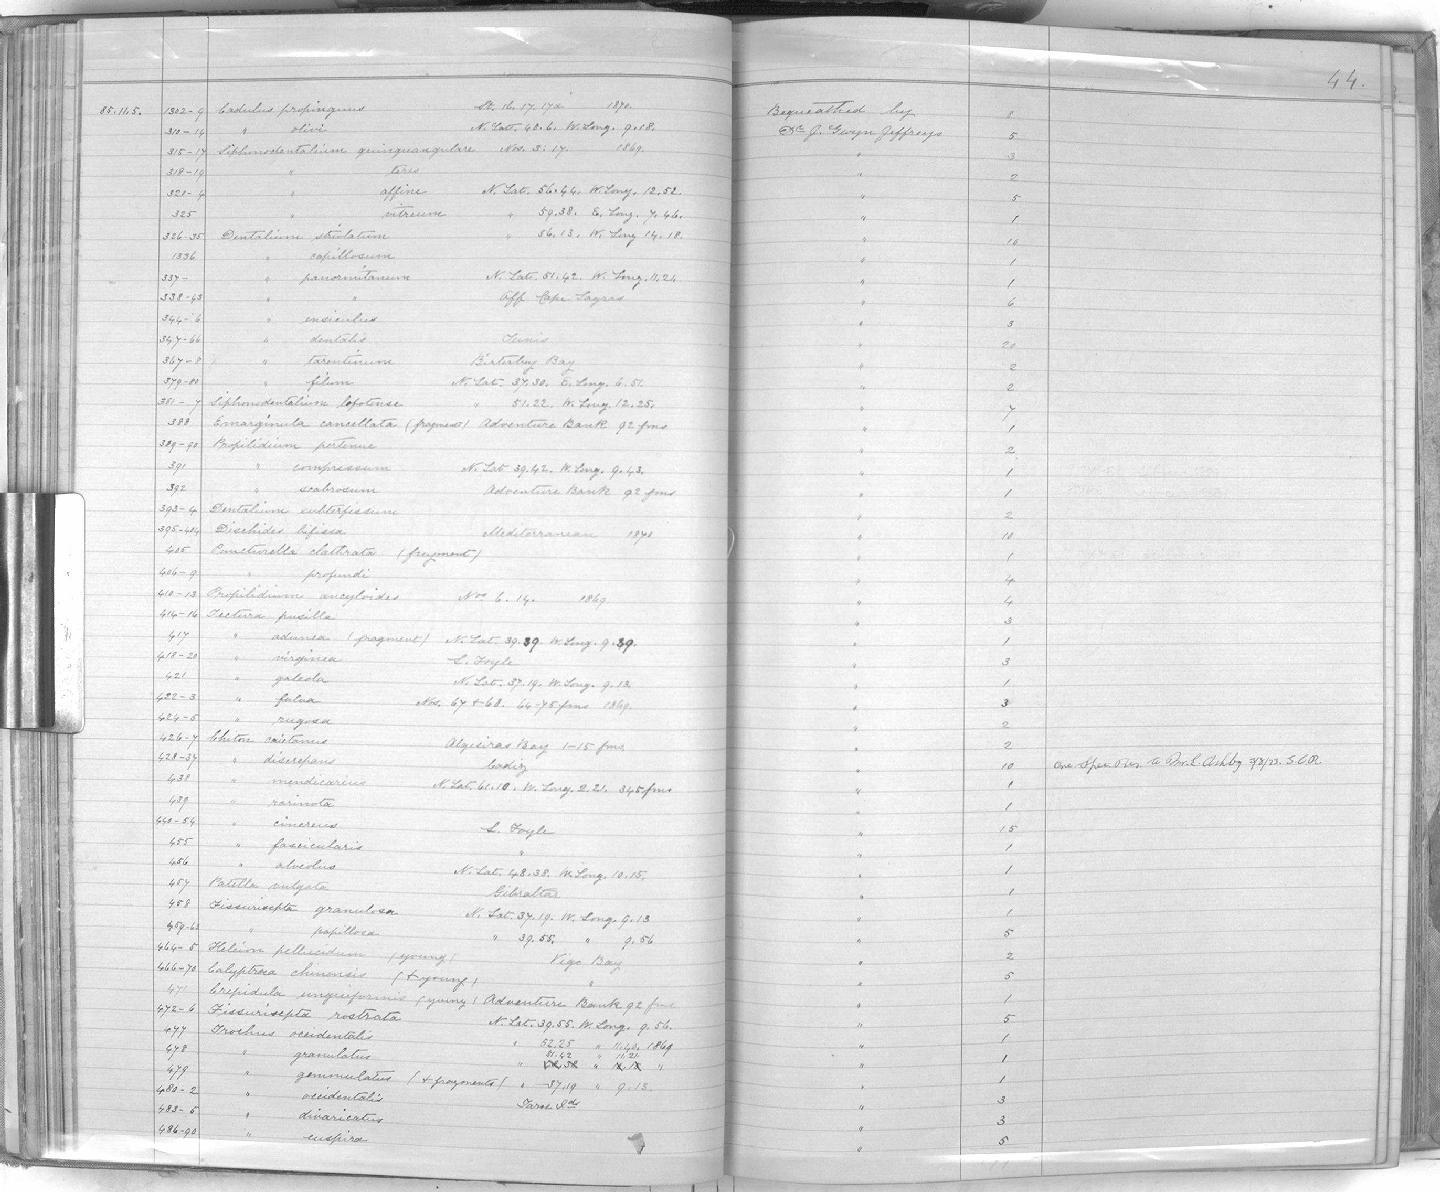 44.
85.11.5. 1302-9 Cadulus propinquus St. 16. 17. 17a 1870. Bequeathed by 8
310-14 " olivi N. Lat. 40.6. W. Long. 9.18. Dr J. Gwyn Jeffreys 5
315-17 Siphonodentalium quinquangulare Nos. 3. 17. 1869. " 3
318-19 " teres " 2
320-4 " affine N. Lat. 56.44. W. Long. 12.52. " 5
325 " vitreum " 59.38. E. Long. 7.46. " 1
326-35 Dentalium striolatum " 56.13. W. Long 14.18. " 10
1336 " capillosum " 1
337- " panormitanum N. Lat. 51.42. W. Long. 11.21. " 1
338-43 " " Off Cape Sagres " 6
344-6 " ensiculus " 3
347-66 " dentalis Tunis " 20
367-8 " tarentinum Birterbuy Bay " 2
379-80 " filum N. Lat. 37.30. E. Long. 6.51. " 2
381-7 Siphonodentalium lofotense " 51.22. W. Long. 12.25. " 7
388 Emarginula cancellata (fragment) Adventure Bank 92 fms " 1
389-90 Propilidium pertenue " 2
391 " compressum N. Lat 39.42. W. Long. 9.43. " 1
392 " scabrosum Adventure Bank 92 fms " 1
393-4 Dentalium subterfissum " 2
395-404 Dischides bifissa Mediterranean 1870 " 10
405 Puncturella clathrata (fragment) " 1
406-9 " profundi " 4
410-13 Propilidium ancyloides Nos 6. 14. 1869 " 4
414-16 Tectura pusilla " 3
417 " adunca (fragment) N. Lat. 39.39 W. Long. 9.39. " 1
418-20 " virginea L. Foyle " 3
421 " galeola N. Lat. 37.19. W. Long. 9.13. " 1
422-3 " fulva Nos. 67 + 68. 64-75 fms 1869. " 3
424-5 " rugosa " 2
426-7 Chiton caietanus Algesiras Bay 1-15 fms. " 2
428-37 " discrepans Cadiz " 10 One Spec. given to Mr. E. Ashby S.C.R.
438 " mendicarius N. Lat. 61.10. W. Long. 2.21. 345 fms " 1
439 " rarinota " 1
440-54 " cinereus L. Foyle " 15
455 " fascicularis " " 1
456 " alveolus N. Lat. 48.38. W. Long. 10.15. " 1
457 Patella vulgata Gibraltar " 1
458 Fissurisepta granulosa N. Lat. 37.19. W. Long. 9.13 " 1
459-63 " papillosa " 39.55. " 9.56 " 5
464-5 Helcion pellucidum (young) Vigo Bay " 2
466-70 Calyptraea chinensis (+ young) " " 5
471 Crepidula unguiformis (young) Adventure Bank 92 fms " 1
472-6 Fissurisepta rostrata N. Lat. 39.55. W. Long. 9.56. " 5
477 Trochus occidentalis " 52.25 " 11.40. 1869 " 1
478 " granulatus " 51.42 " 11.21. " " 1
479 " gemmulatus (+ fragments) " 37.19 " 9.13. " 1
480-2 " occidentalis Faroe Ids " 3
483-5 " divaricatus " 3
486-90 " euspira " 5